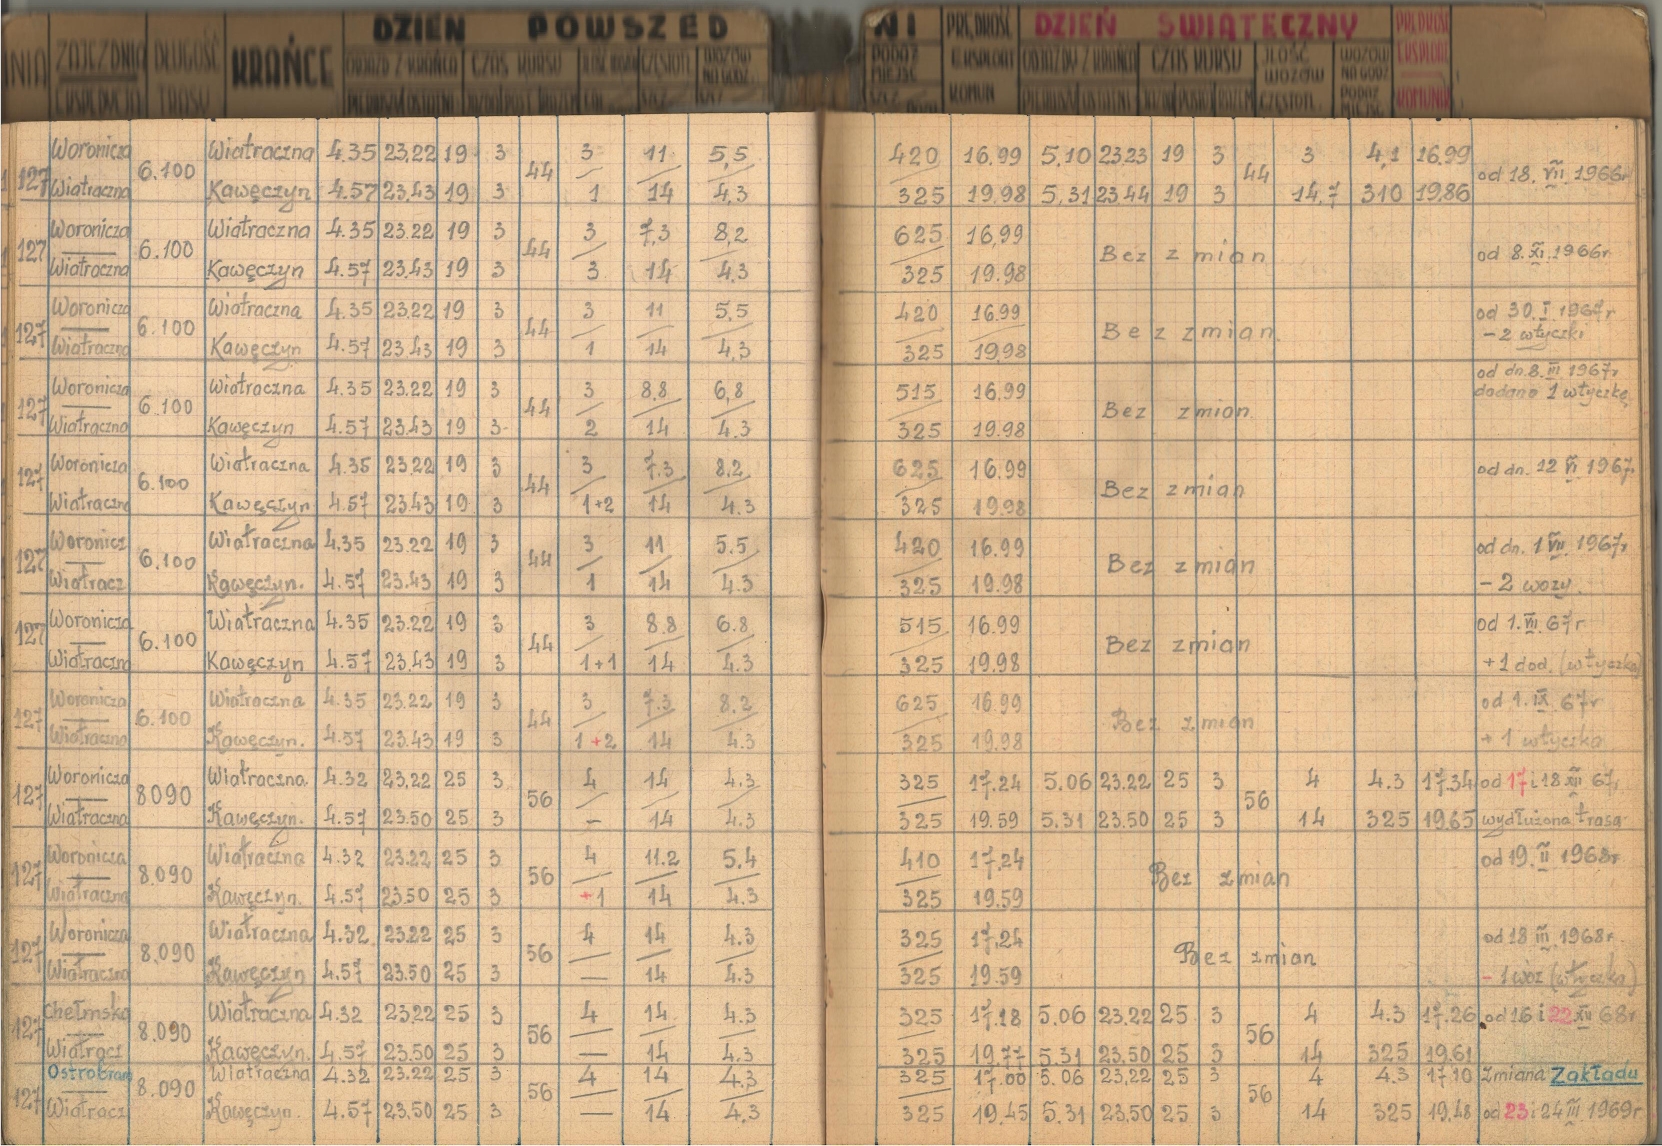 DZIEŃ POWSZED NI DZIEŃ ŚWIĄTECZNY
NIA ZAJEZDNIA DŁUGOŚĆ KRAŃCE ODJAZD Z KRAŃCA CZAS KURSU CZĘSTOTL. WOZÓW NA GODZ. PODAŻ MIEJSC PRĘDKOŚĆ EKSPLOAT KOMUN ODJAZDY Z KRAŃCA CZAS KURSU ILOŚĆ WOZÓW CZĘSTOTL. WOZÓW NA GODZ PODAŻ MIEJSC PRĘDKOŚĆ EKSPLOAT KOMUNIK
EKSPEDYCJA TRASY PIERWSZY OSTATNI PIERWSZY OSTATNI
Woronicza Wiatraczna 4.35 23,22 19 3 3 11 5,5 420 16,99 5,10 23 23 19 3 3 4,1 16,99
127 6.100 44 44 od 18. VII. 1966r
Wiatraczna Kawęczyn 4.57 23.43 19 3 1 14 4,3 325 19,98 5,31 23 44 19 3 14,7 310 19,86
Woronicza Wiatraczna 4.35 23.22 19 3 3 7,3 8,2 625 16,99
127 6.100 44 Bez zmian od 8. XI. 1966r
Wiatraczna Kawęczyn 4.57 23.43 19 3 3 14 4.3 325 19.98
Woronicza Wiatraczna 4.35 23.22 19 3 3 11 5,5 420 16.99 od 30. I. 1967r
127 6.100 44 Bez zmian. – 2 wtyczki
Wiatraczna Kawęczyn 4.57 23.43 19 3 1 14 4,3 325 19,98
Woronicza Wiatraczna 4.35 23.22 19 3 3 8,8 6,8 515 16,99 od dn. 8. III 1967r
127 6.100 44 Bez zmian. dodano 1 wtyczkę
Wiatraczna Kawęczyn 4.57 23.43 19 3 2 14 4.3 325 19.98
Woronicza Wiatraczna 4.35 23.22 19 3 3 7.3 8.2 625 16.99 od dn. 12 VI 1967r
127 6.100 44 Bez zmian
Wiatraczna Kawęczyn 4.57 23.43 19 3 1+2 14 4.3 325 19.98
Woronicz Wiatraczna 4.35 23.22 19 3 3 11 5.5 420 16.99 od dn. 1 VII 1967r
127 6.100 44 Bez zmian
Wiatracz Kawęczyn. 4.57 23.43 19 3 1 14 4.3 325 19.98 – 2 wozy.
Woronicza Wiatraczna 4.35 23.22 19 3 3 8.8 6.8 515 16.99 od 1. VIII. 67r
127 6.100 44 Bez zmian
Wiatraczn Kawęczyn 4.57 23.43 19 3 1+1 14 4.3 325 19.98 +1 dod. (wtyczka)
Woronicza Wiatraczna 4.35 23.22 19 3 3 7.3 8.2 625 16.99 od 1. IX. 67r
127 6.100 44 Bez zmian
Wiatraczna Kawęczyn. 4.57 23.43 19 3 1+2 14 4.3 325 19.98 + 1 wtyczka
Woronicza Wiatraczna 4.32 23,22 25 3 4 14 4.3 325 17.24 5.06 23.22 25 3 4 4.3 17.34 od 17 i 18 XII 67r
127 8090 56 56
Wiatraczna Kawęczyn. 4.57 23.50 25 3 – 14 4.3 325 19.59 5.31 23.50 25 3 14 325 19.65 wydłużona trasa
Woronicza Wiatraczna 4.32 23.22 25 3 4 11.2 5.4 410 17.24 od 19. II 1968r
127 8.090 56 Bez zmian
Wiatraczna Kawęczyn. 4.57 23.50 25 3 +1 14 4.3 325 19.59
Woronicza Wiatraczna 4.32 23.22 25 3 4 14 4.3 325 17,24 od 18 III 1968r.
127 8.090 56 Bez zmian
Wiatraczna Kawęczyn 4.57 23.50 25 3 — 14 4.3 325 19.59 – 1 wóz (wtyczka)
Chełmska Wiatraczna 4.32 23,22 25 3 4 14 4.3 325 17.18 5.06 23.22 25 3 4 4.3 17.26 od 16 i 22 XII 68r
127 8.090 56 56
Wiatracz Kawęczyn. 4.57 23.50 25 3 — 14 4.3 325 19.77 5.31 23.50 25 3 14 325 19.61
Ostrobram Wiatraczna 4.32 23.22 25 3 4 14 4.3 325 17.00 5.06 23,22 25 3 4 4.3 17.10 zmiana Zakładu
127 8.090 56 56
Wiatracz Kawęczyn. 4.57 23,50 25 3 — 14 4,3 325 19,45 5.31 23.50 25 3 14 325 19,48 od 23 i 24 III 1969r